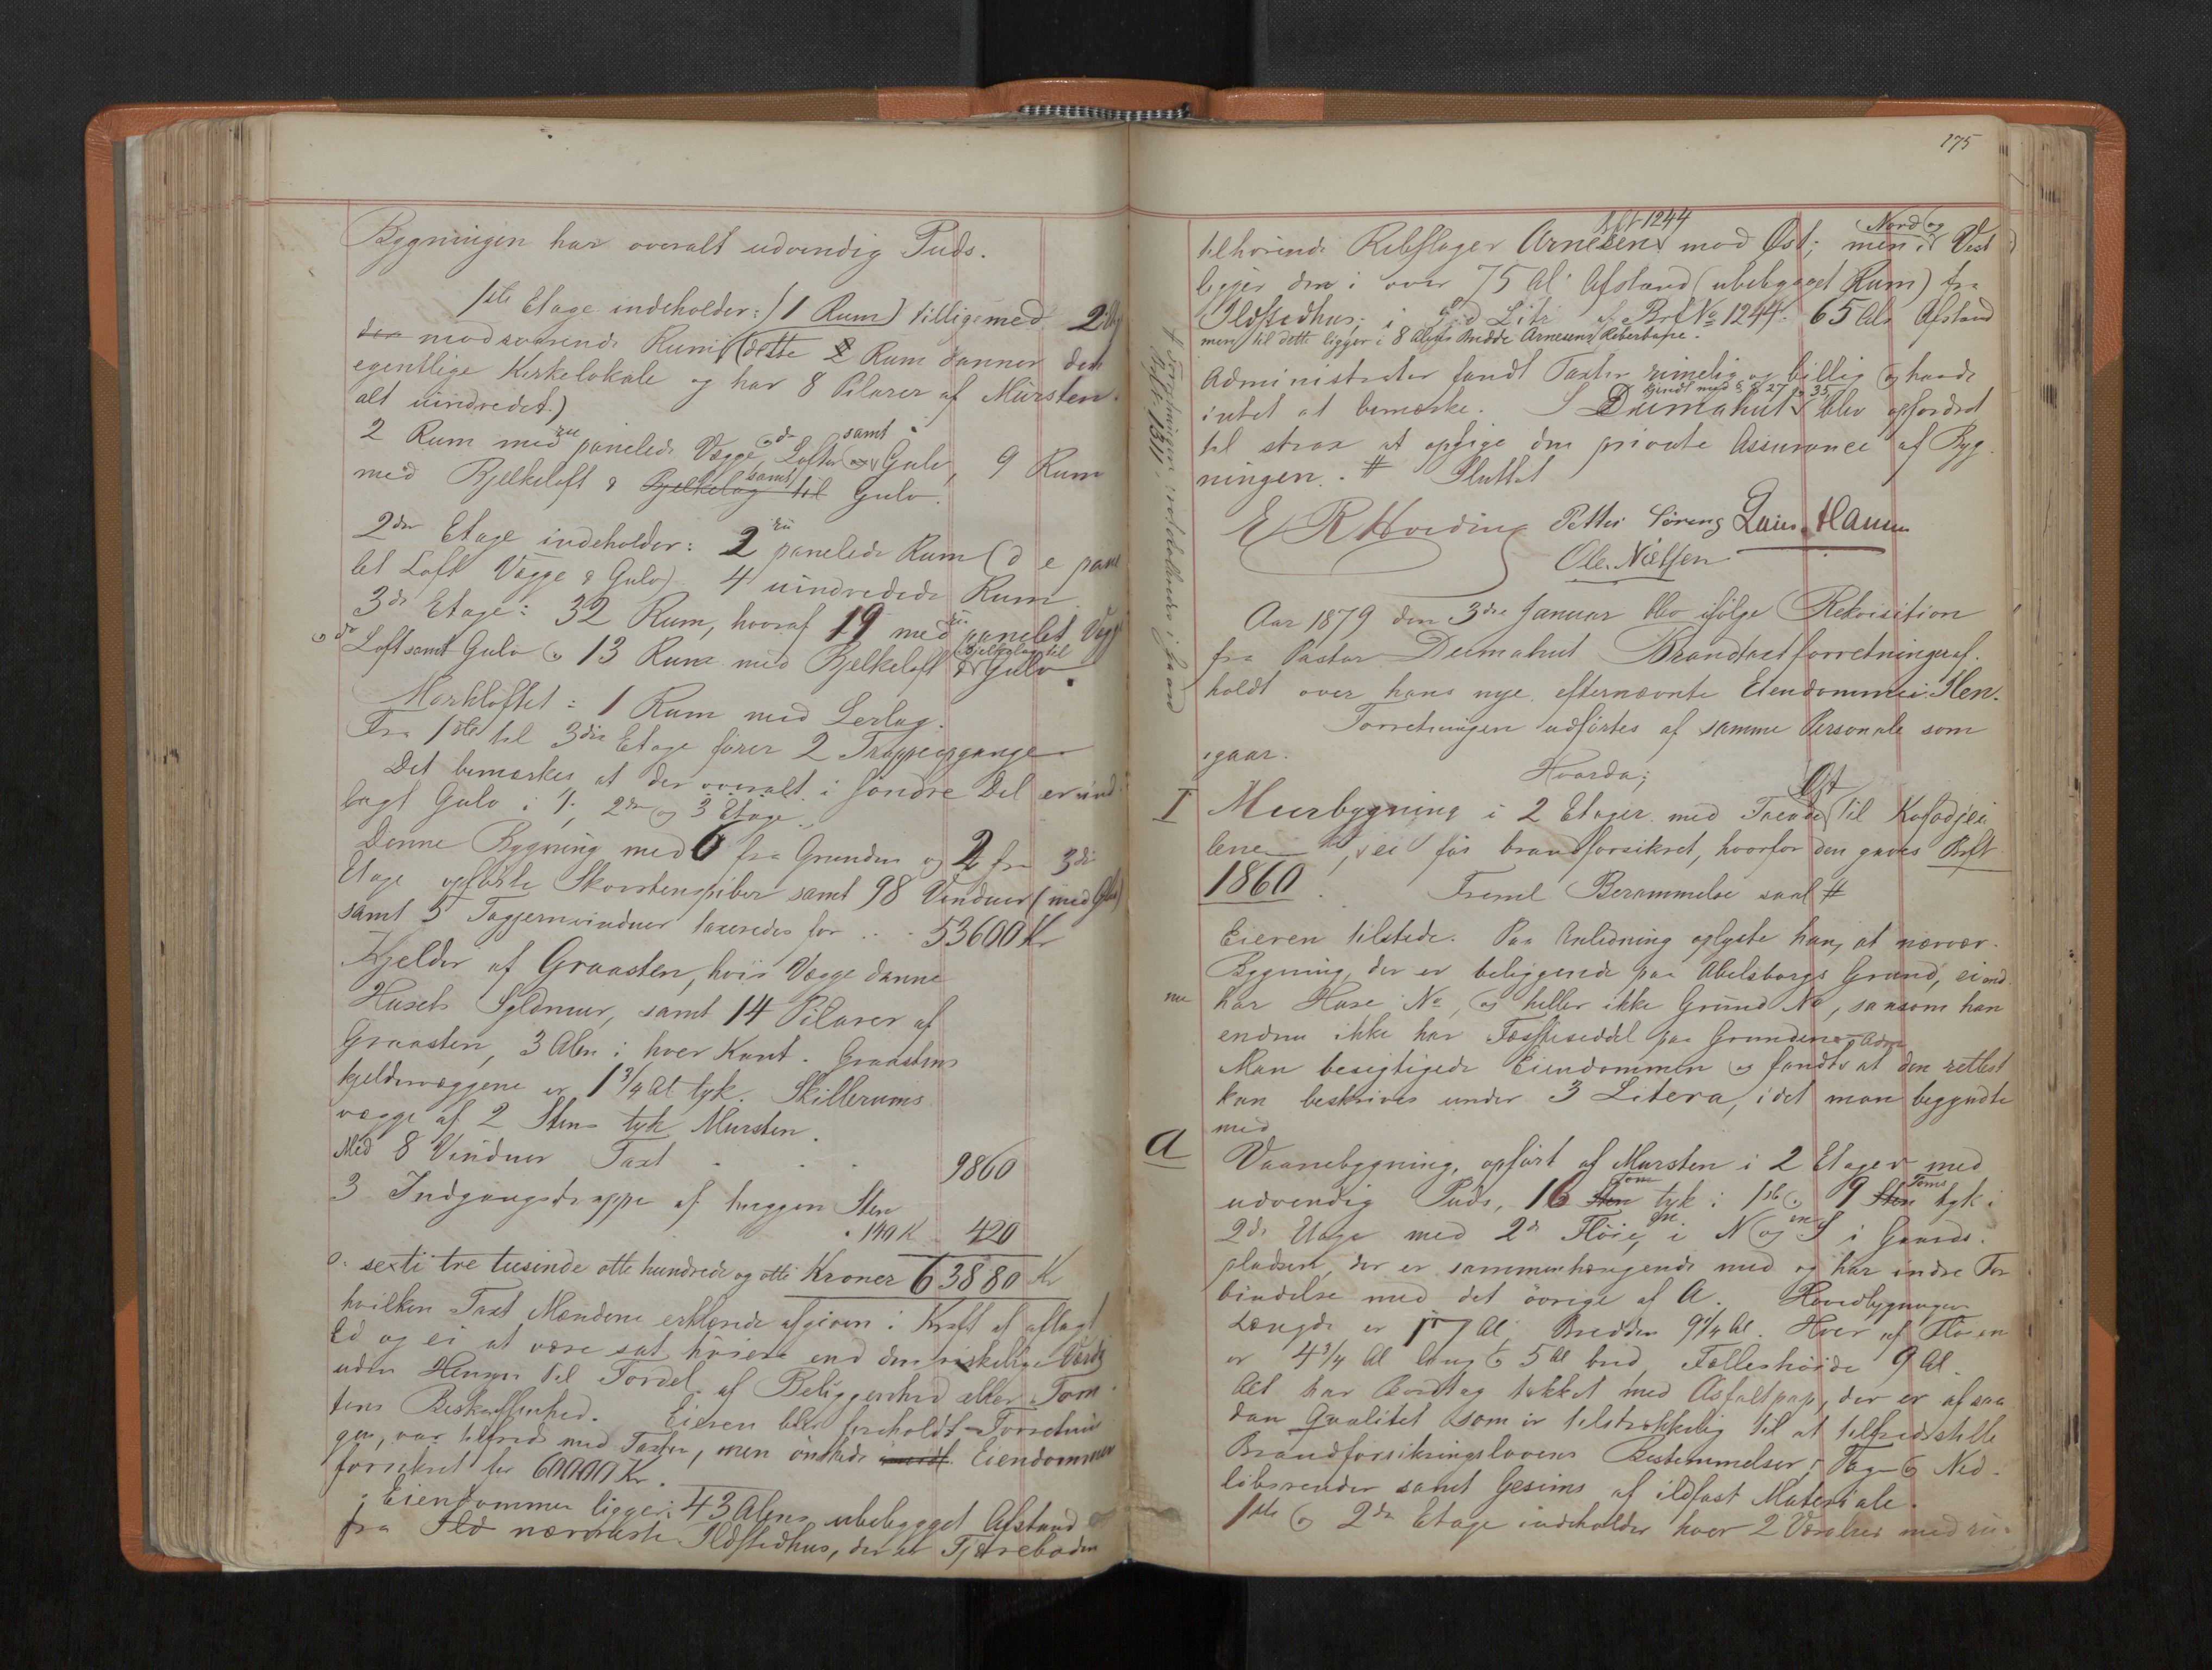 Bygningen har overalt udvendig Puds.
1ste Etage indeholder: (1 Rum) tilligemed 2
modsvarende Rum (dette 2 Rum danner den
egentlige Kirkelokale og har 8 Pilarer af Mürsten.
alt uindredet.)
2 Rum med panelede Vægge, Lofter samt Gulv, 9 Rum
med Bjelkeloft & Bjelkelag til samt Gulv.
2den Etage indeholder: 2 panelede Rum (d e pane
let Loft Vægge & Gulv). 4 uindredede Rum.
3die Etage: 32 Rum, hvoraf 19 med panelet Vægge
Loft samt Gulv og 13 Rum med Bjelkeloft & Bjelkelag til Gulv.
Mørkloftet: 1 Rum med Lerlag.
Fra 1ste til 3die Etage fører 2 Trappeopgange
Det bemærkes at der overalt i søndre Del er ind
lagt Gulv i 1, 2den og 3 Etage.
Denne Bygning med 6 fra Grunden og 2 fra 3die
Etage opførte Skorstenspiber samt 98 Vinduer (med Glas)
samt 5 Tagjernvinduer taxeredes for . . 53600 Kr
Kjelder af Graasten, hvis Vægge danne
Husets Syldmur, samt 14 Pilarer af
Graasten, 3 Alen i hver Kant. Graastens
kjeldervæggene er 1 3/4 Al tyk. Skillerums
vægge af 2 Stens tyk Mursten.
Med 8 Vinduer Taxt . . . 9860
3 Indgangstrappe af huggen Sten
. 140 K 420
sexti tre tusinde otte hundrede og otti Kroner 63880 Kr
hvilken Taxt Mændene erklærede afgiven i Kraft af aflagt
Ed og ei at være sat høiere end den virkelige Værdi
uden Hensyn til Fordel af Beliggenhed eller Tom
tens Beskaffenhed. Eieren blev foreholdt Forretnin
gen, var tilfreds med Taxten, men ønskede Eiendommen
forsikret for 60000 Kr.
Eiendommen ligger i 43 Alens ubebygget Afstand
fra Ild nærmeste Ildstedhus, der er Tjæreboden
175
tilhørende Rebslager Arnesen Bf 1244 mod Øst; men i Nord og Vest
ligger den i over 75 Al Afstand (ubebygget Rum) fra
Ildstedhus; i Lit af Brf No 1244. 65 Als Afstand
men til dette ligger i 8 Alens Bredde Arnesens Reberbane.
Administrator fandt Taxten rimelig og billig og havde
intet at bemærke. Dumahut kjendt med § 27 & 35, blev opfordret
til strax at opsige den private Assurance af Byg
ningen. # Sluttet
E R Hveding Petter Sørens Lain. Hansen
Ole Nielsen
Forretningen
Brf No 1811
Aar 1879 den 3die Januar blev ifølge Rekvisition
fra Pastor Dumahut Brandtaxtforretning af
holdt over hans nye efternævnte Eiendomme i Ilen.
Forretningen udførtes af samme Personale som
igaar.
Hvorda;
I Muurbygning i 2 Etager med Facade Øst til Kafadjei
lene, ei før brandforsikret, hvorfor den gaves Brft
1860. Freml Berammelse saal #
Eieren tilstede. Paa Anledning oplyste han, at nærvær.
Bygning, der er beliggende paa Abelsborgs Grund, ei end
nu har Huse No, og heller ikke Grund No, saasom han
endnu ikke har Fæsteseddel paa Grunden.
Man besigtigede Eiendommen og fandt at den rettest
kan beskrives under 3 Litera, idet man begyndte
med
A Vaanebygning, opført af Mursten i 2 Etager med
udvendig Puds, 16 Sten Tom tyk i 1ste og 9 Sten Toms tyk i
2den Etage med 2de Fløie, i N og S i Gaards-
pladsen, der er sammenhængende med og har indre For
bindelse med det øvrige af A. Hovedbygningen
Længde er 17 Al, Bredden 9 1/4 Al. Hver af Fløien
er 4 3/4 Al lang & 5 Al bred, Fælleshøide 9 Al.
Alt har Bordtag tækket med Asfaltpap, der er af saa
dan Qvalitet som er tilstrækkelig til at tilfredsstille
Brandforsikringslovens Bestemmelser, Tag & Ned.
løbsrender samt Gesims af ildfast Materiale.
1ste & 2den Etage indeholder hver 2 Værelser med